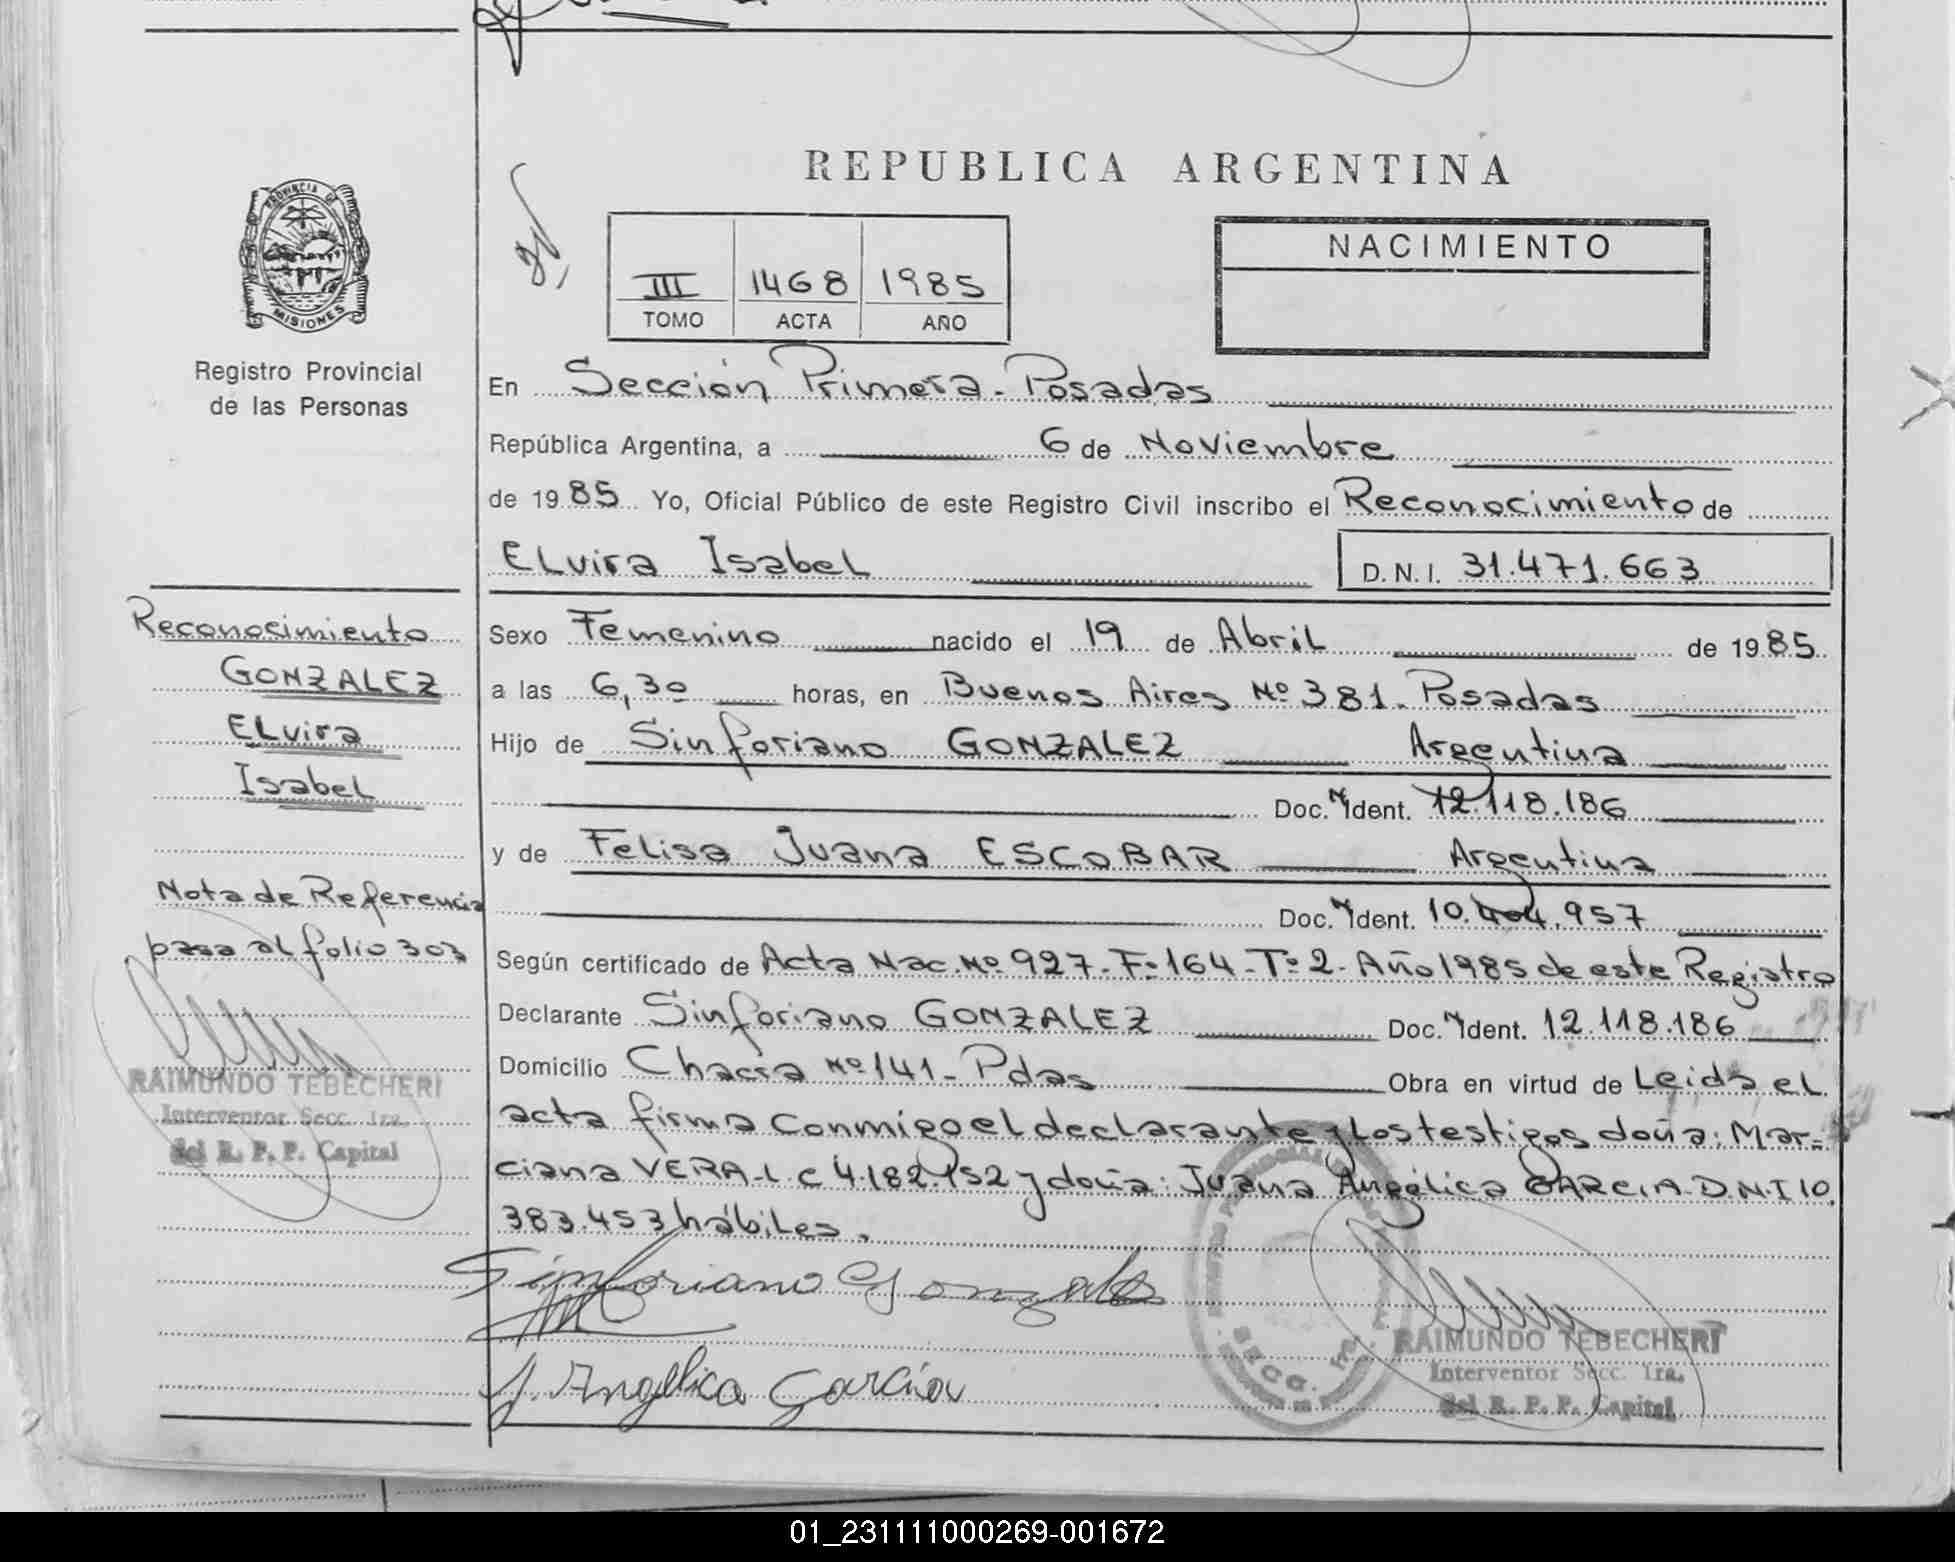 REPUBLICA ARGENTINA
PROVINCIA DE
MISIONES
Registro Provincial
de las Personas
III 1468 1985
TOMO ACTA AÑO
NACIMIENTO
En Sección Primera - Posadas
República Argentina, a 6 de Noviembre
de 1985 Yo, Oficial Público de este Registro Civil inscribo el Reconocimiento de
Elvira Isabel D.N.I. 31.471.663
Reconocimiento
GONZALEZ
Elvira
Isabel
Nota de Referencia
pasa al folio 303
RAIMUNDO TEBECHERI
Interventor Secc. 1ra.
del R. P. P. Capital
Sexo Femenino nacido el 19 de Abril de 1985
a las 6,30 horas, en Buenos Aires Nº 381 - Posadas
Hijo de Sinforiano GONZALEZ Argentina
Doc. Ident. 12.118.186
y de Felisa Juana ESCOBAR Argentina
Doc. Ident. 10.404.957
Según certificado de Acta Nac. Nº 927 - Fº 164 - Tº 2 - Año 1985 de este Registro
Declarante Sinforiano GONZALEZ Doc. Ident. 12.118.186
Domicilio Chacra Nº 141 - Pdas Obra en virtud de Leida el
acta firma conmigo el declarante y los testigos doña: Mar=
ciana VERA - L.C 4.182.152 y doña: Juana Angélica GARCIA D.N.I 10.
383.453 hábiles.
Sinforiano Gonzalez
J. Angélica García
SECC. 1ra.
RAIMUNDO TEBECHERI
Interventor Secc. 1ra.
del R. P. P. Capital
01_231111000269-001672